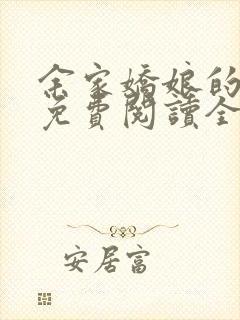 余家嬌娘的
免費閱讀全
安居富